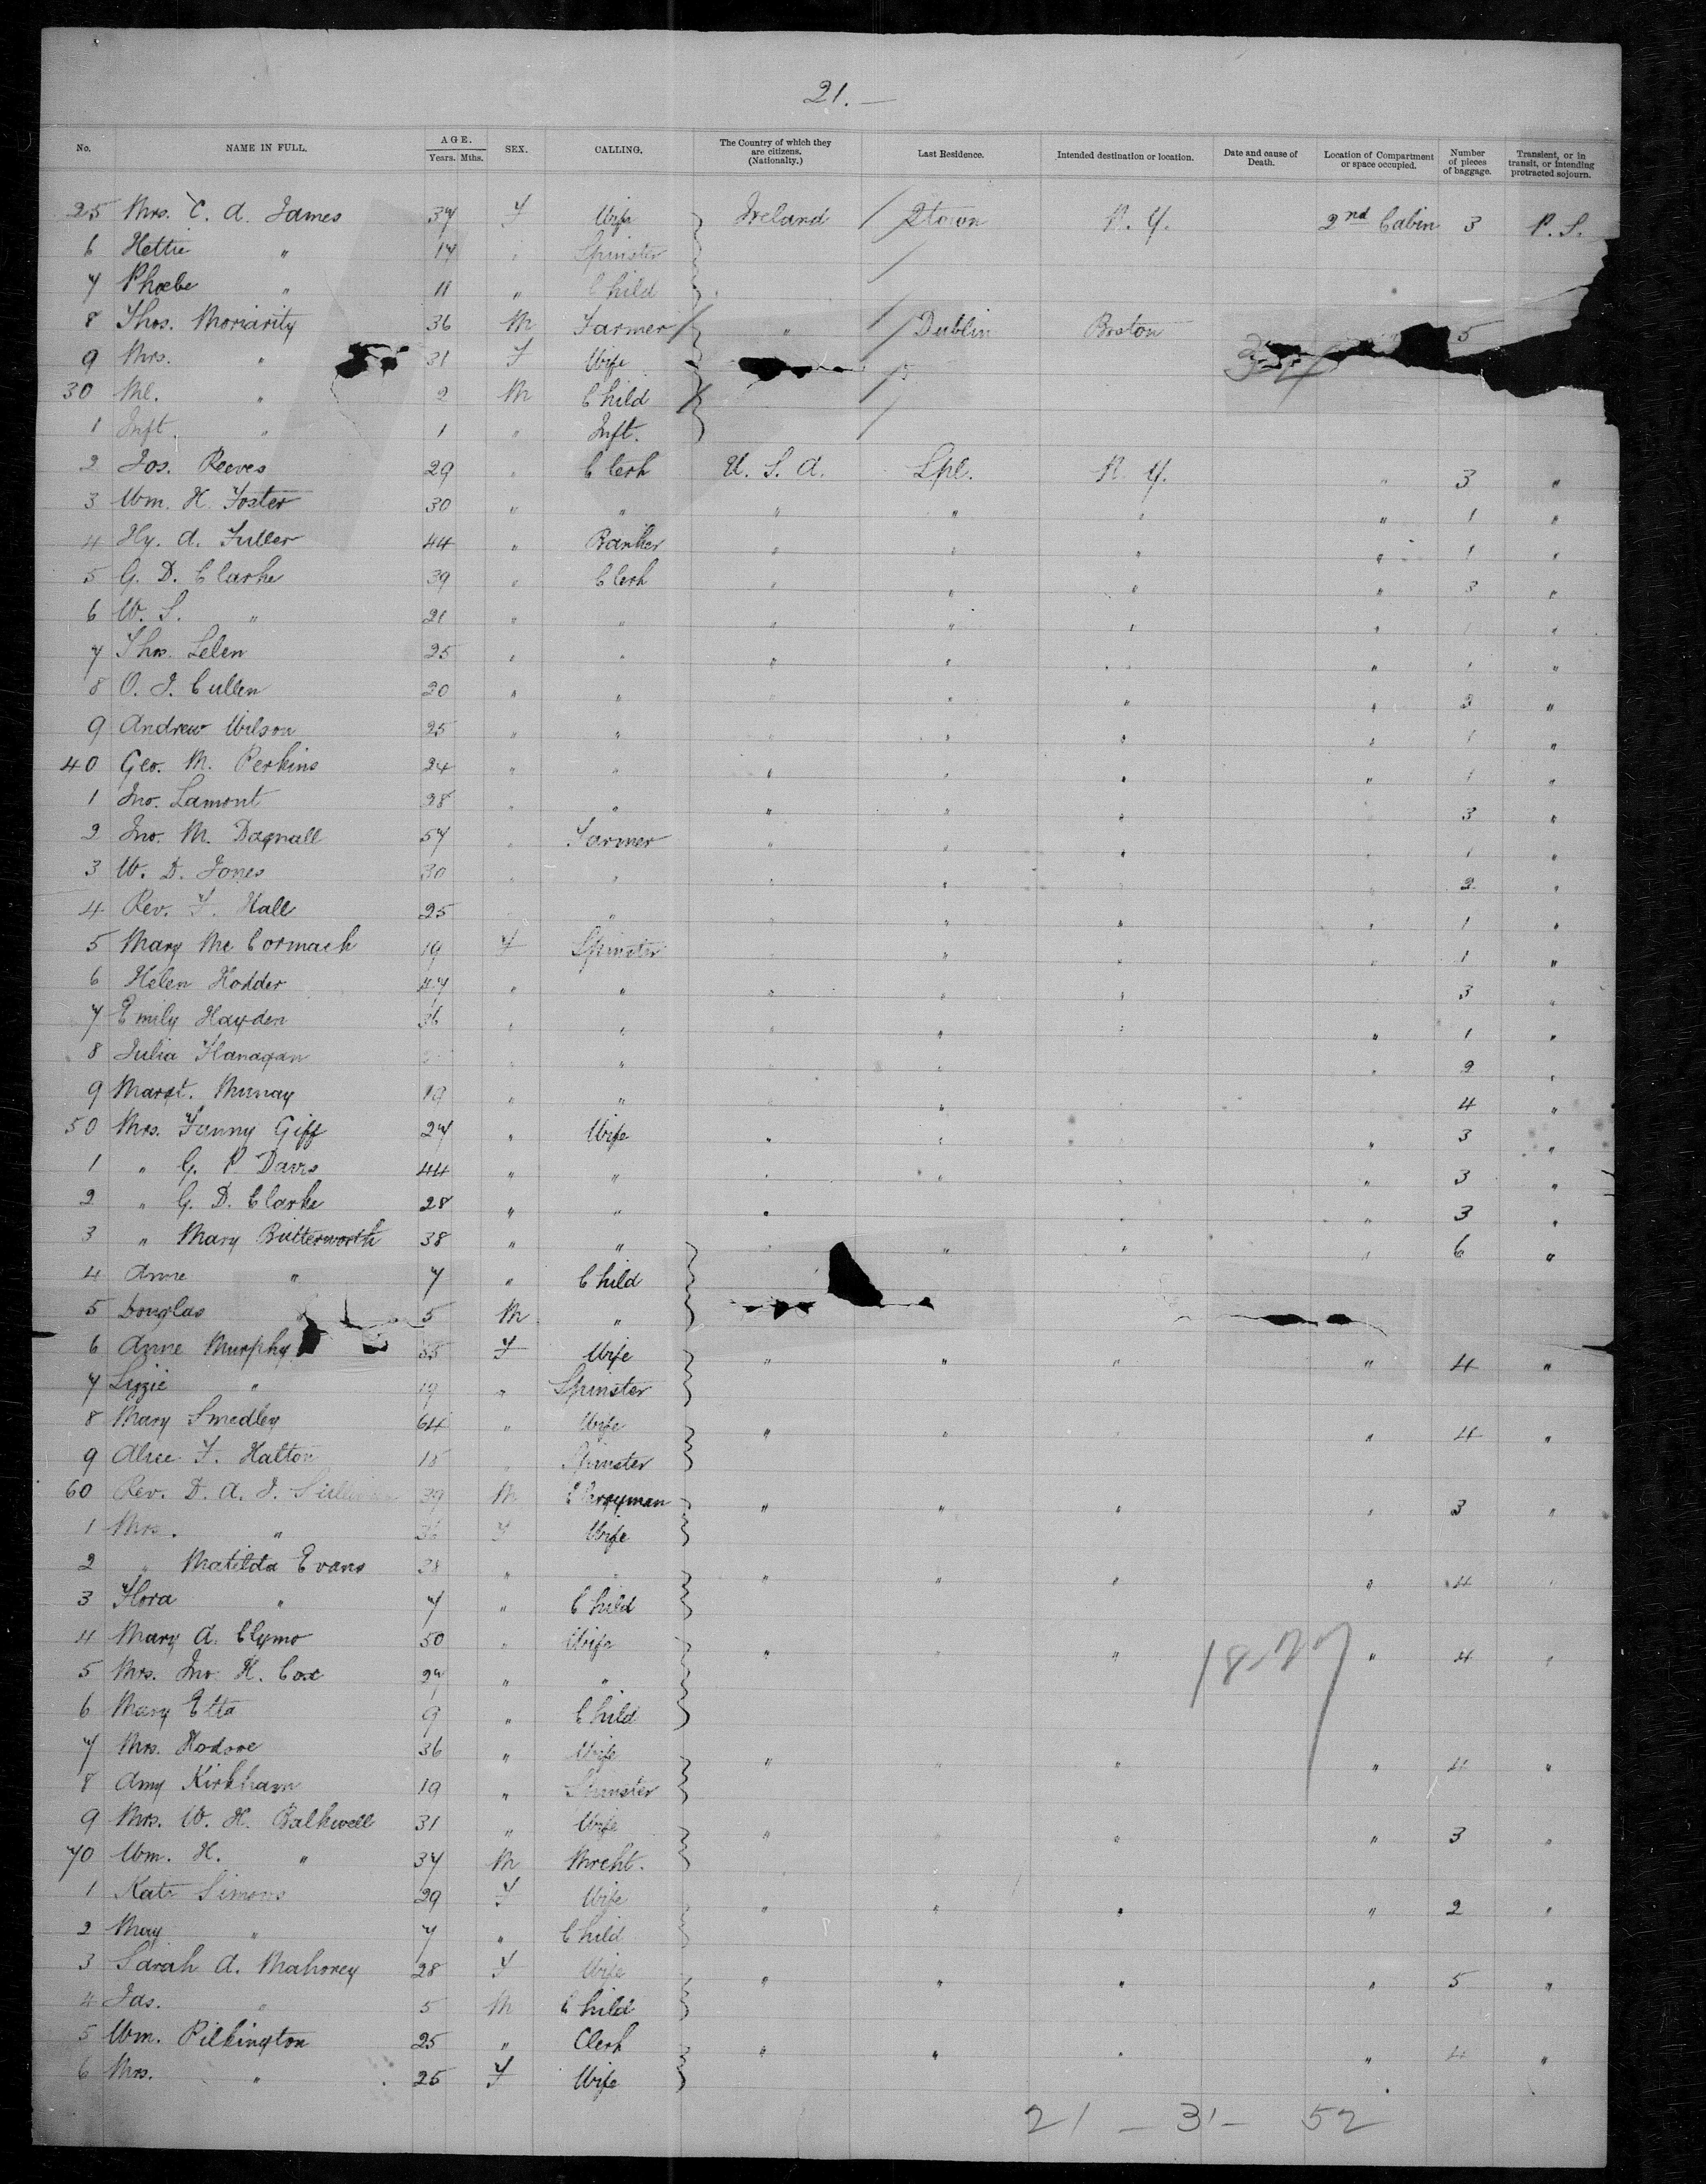 21.—
No. NAME IN FULL. AGE. Years. Mths. SEX. CALLING. The Country of which they are citizens. (Nationalty.) Last Residence. Intended destination or location. Date and cause of Death. Location of Compartment or space occupied. Number of pieces of baggage. Transient, or in transit, or intending protracted sojourn.
25 Mrs. C. A. James 37 F Wife Ireland / Qtown N. Y. 2nd Cabin 3 P. S.
6 Hettie " 17 " Spinster /
7 Phoebe " 11 " Child
8 Thos. Moriarity 36 M Farmer / " / Dublin Boston 5
9 Mrs. " 31 F Wife /
30 Ml. " 2 M Child / /
1 Inft. " 1 " Inft.
2 Jos. Reeves 29 " Clerk U. S. A. Lpl. N. Y. " 3 "
3 Wm. H. Foster 30 " " " " " " 1 "
4 Hy. A. Fuller 44 " Banker " " " " 1 "
5 G. D. Clarke 39 " Clerk " " " " 3 "
6 W. S. " 21 " " " " " " "
7 Thos. Lelen 25 " " " " " " 1 "
8 O. J. Cullen 20 " " " " " 2 "
9 Andrew Wilson 25 " " " " " " 1 "
40 Geo. M. Perkins 24 " " " " " " 1 "
1 Jno. Lamont 28 " " " " " 3 "
2 Jno. M. Dagnall 57 " Farmer " " " 1 "
3 W. D. Jones 30 " " " " " " 2 "
4 Rev. F. Hall 25 " " " " " 1 "
5 Mary McCormack 19 F Spinster " " " " 1 "
6 Helen Hodder 47 " " " " " 3 "
7 Emily Hayden 36 " " " " " " 1 "
8 Julia Flanagan " " " " " " 2 "
9 Margt. Murray 19 " " " " 4 "
50 Mrs. Fanny Giff 27 " Wife " " " " 3 "
1 " G. P. Davis 44 " " " " " " 3 "
2 " G. D. Clarke 28 " " " " " 3 "
3 " Mary Butterworth 38 " " " " " " 6 "
4 Anne " 7 " Child
5 Douglas " 5 M "
6 Anne Murphy 35 F Wife " " " " 4 "
7 Lizzie " 19 " Spinster
8 Mary Smedley 64 " Wife " " " " 4 "
9 Alice F. Halton 18 " Spinster
60 Rev. D. A. J. 39 M Clergyman " " " " 3 "
1 Mrs. " 36 F Wife
2 " Matilda Evans 38 " " " " " " 4 "
3 Flora " 7 " Child
4 Mary A. Clymo 50 " Wife " " " " 4 "
5 Mrs. Jno. H. Cox 27 " "
6 Mary Etta 9 " Child
7 Mrs. Hodsoe 36 " Wife " " " " 4 "
8 Amy Kirkham 19 " Spinster
9 Mrs. W. H. Balkwell 31 " Wife " " " " 3 "
70 Wm. H. " 37 M Mrcht.
1 Kate Simons 29 F Wife " " " " 2 "
2 May " 7 " Child
3 Sarah A. Mahoney 28 F Wife " " " " 5 "
4 Jas. " 5 M Child
5 Wm. Pilkington 25 " Clerk " " " " 4 "
6 Mrs. " 25 F Wife
21 — 31 — 52